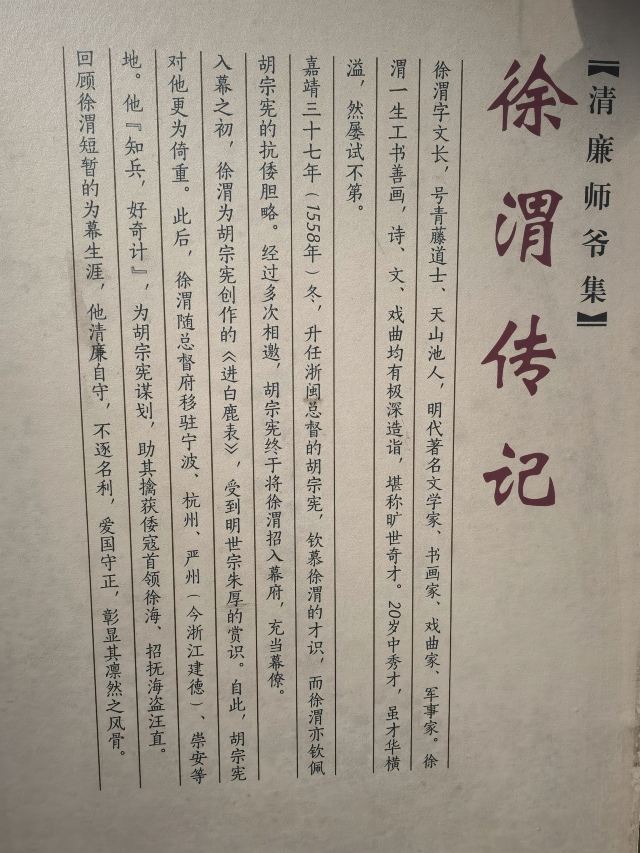 【清廉师爷集】
徐渭传记
徐渭字文长，号青藤道士、天山池人，明代著名文学家、书画家、戏曲家、军事家。徐
渭一生工书善画，诗、文、戏曲均有极深造诣，堪称旷世奇才。20岁中秀才，虽才华横
溢，然屡试不第。
嘉靖三十七年（1558年）冬，升任浙闽总督的胡宗宪，钦慕徐渭的才识，而徐渭亦钦佩
胡宗宪的抗倭胆略。经过多次相邀，胡宗宪终于将徐渭招入幕府，充当幕僚。
入幕之初，徐渭为胡宗宪创作的《进白鹿表》，受到明世宗朱厚的赏识。自此，胡宗宪
对他更为倚重。此后，徐渭随总督府移驻宁波、杭州、严州（今浙江建德）、崇安等
地。他『知兵，好奇计』，为胡宗宪谋划，助其擒获倭寇首领徐海、招抚海盗汪直。
回顾徐渭短暂的为幕生涯，他清廉自守，不逐名利，爱国守正，彰显其凛然之风骨。